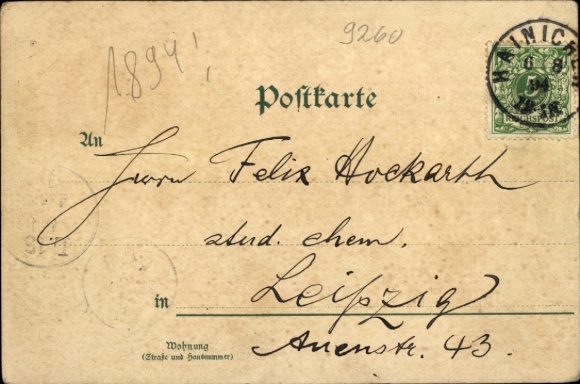 1894!
9260
HAINICHEN
6 8
94
REICHSPOST
Postkarte
An
Herrn Felix Hockarth
stud. chem.
in Leipzig
Wohnung
(Straße und Hausnummer)
Auenstr. 43.